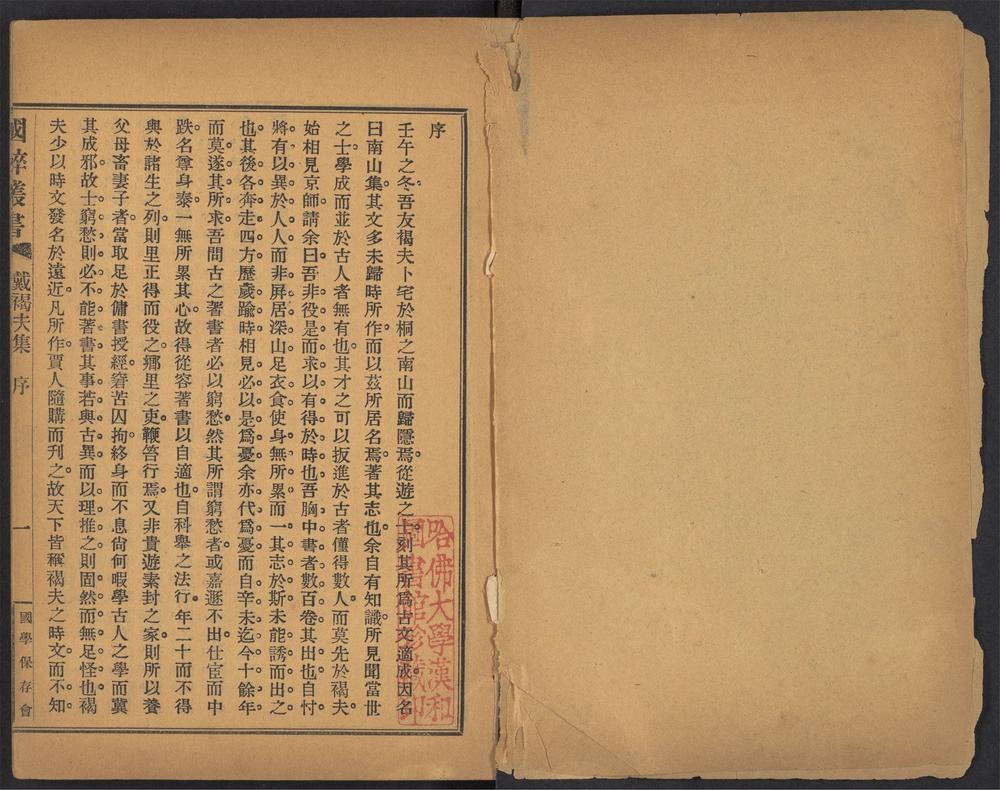 序
壬午之冬。吾友褐夫卜宅於桐之南山而歸隱焉。從遊之士。刻其所爲古文適成。因名
曰南山集。其文多未歸時所作。而以茲所居名焉。著其志也。余自有知識。所見聞當世
之士。學成而並於古人者無有也。其才之可以扳進於古者僅得數人。而莫先於褐夫。
始相見京師。請余曰。吾非役是而求以有得於時也。吾胸中書者數百卷。其出也自忖
將有以異於人人。而非屏居深山。足衣食。使身無所累。而一其志於斯。未能誘而出之
也。其後各奔走四方。歷歲踰時相見。必以是爲憂。余亦代爲憂。而自辛未迄今十餘年。
而莫遂其所求。吾聞古之著書者必以窮愁。然其所謂窮愁者。或嘉遯不出。仕宦而中
跌。名尊身泰。一無所累其心。故得從容著書以自適也。自科舉之法行。年二十而不得
與於諸生之列。則里正得而役之。鄉里之吏。鞭笞行焉。又非貴遊素封之家。則所以養
父母畜妻子者。當取足於傭書授經。窘苦囚拘。終身而不息。尙何暇學古人之學而冀
其成邪。故士窮愁則必不能著書。其事若與古異。而以理推之。則固然而無足怪也。褐
夫少以時文發名於遠近。凡所作。賈人隨購而刊之。故天下皆稱褐夫之時文。而不知
國粹叢書
戴褐夫集 序
一
國學保存會
哈佛大學漢和
圖書館珍藏印